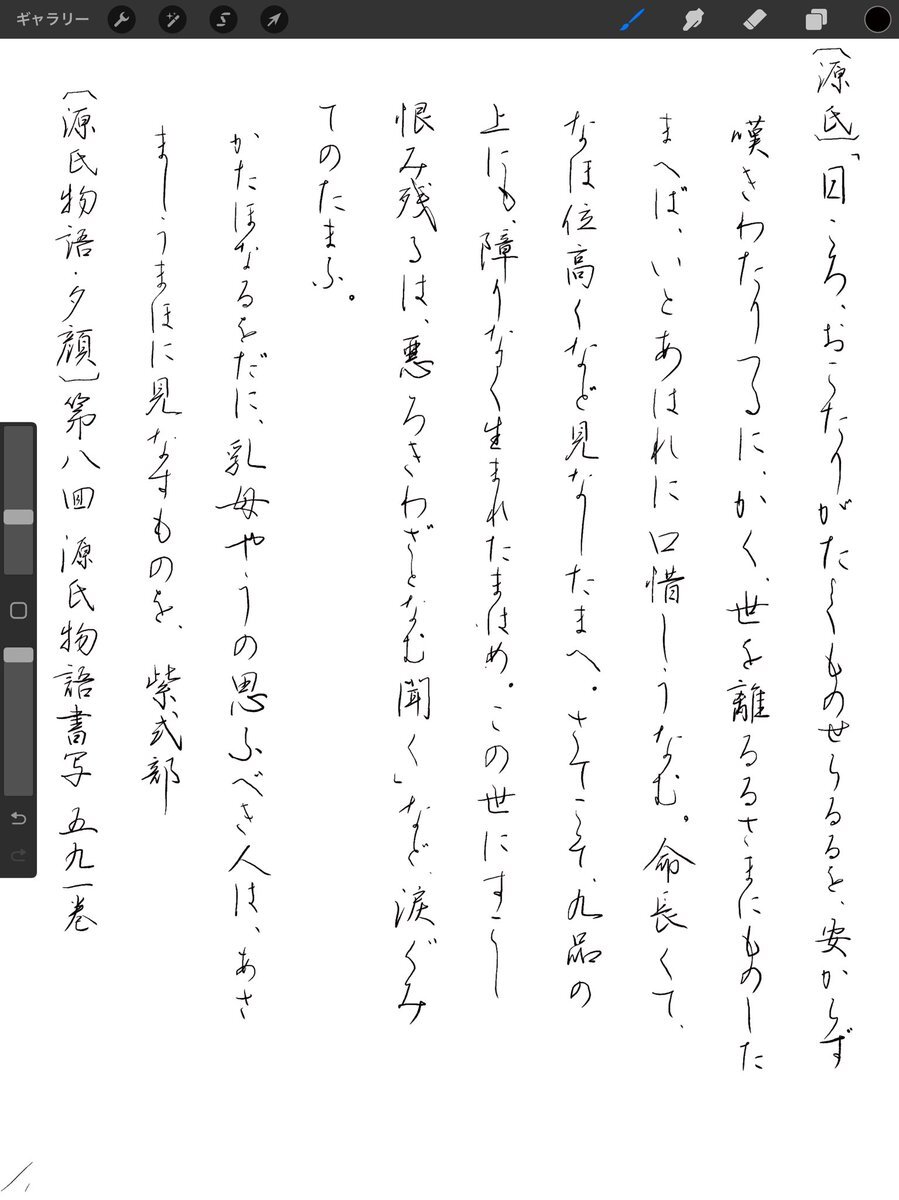 ギャラリー
〔源氏〕「日ころ、おこたりがたくものせらるるを、安からず
嘆きわたりつるに、かく、世を離るるさまにものした
まへば、いとあはれに口惜しうなむ。命長くて、
なほ位高くなど見なしたまへ。さてこそ、九品の
上にも、障りなく生まれたまはめ。この世にすこし
恨み残るは、悪ろきわざとなむ聞く」など、涙ぐみ
てのたまふ。
かたほなるをだに、乳母やうの思ふべき人は、あさ
ましうまほに見なすものを、 紫式部
〔源氏物語・夕顔〕第八回 源氏物語書写 五九一巻